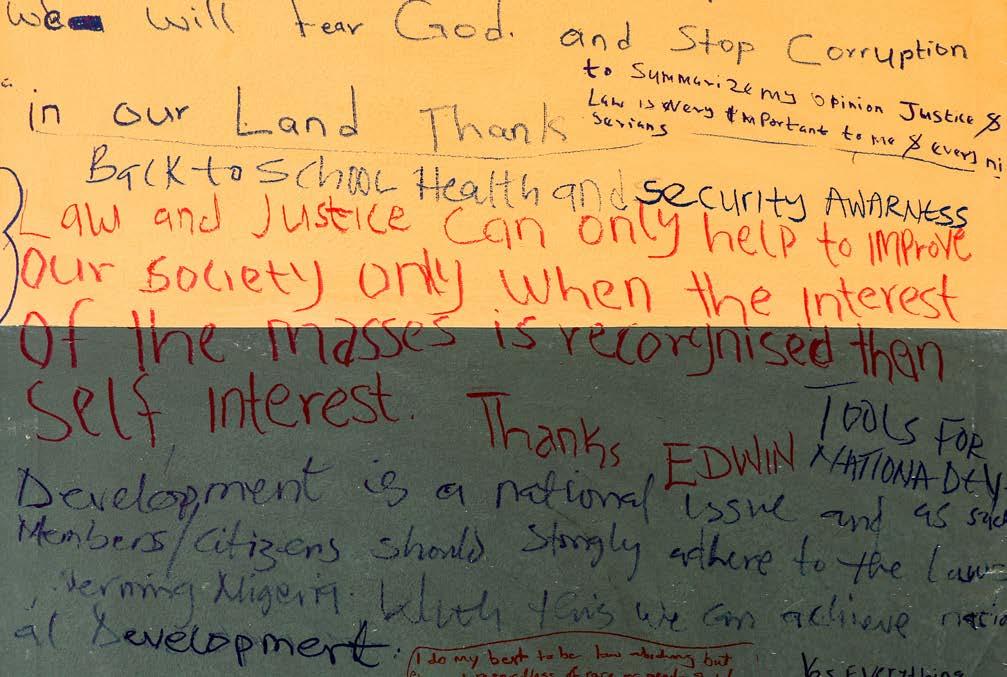 we will fear God. and Stop Corruption
in our Land Thank
to Summarize my opinion Justice &
Law is very important to me & every ni
Back to School Health and security AWARNESS
Law and Justice can only help to improve
our society only when the interest
of the masses is recorgnised than
self interest. Thanks EDWIN
TOOLS FOR
NATIONA DEV.
Development is a national issue and as such
Members/citizens should Stongly adhere to the Law
verning Nigeria. With this we can achieve natio
al Development.
I do my best to be law abiding but
regardless of race or
Yes EVERYthing